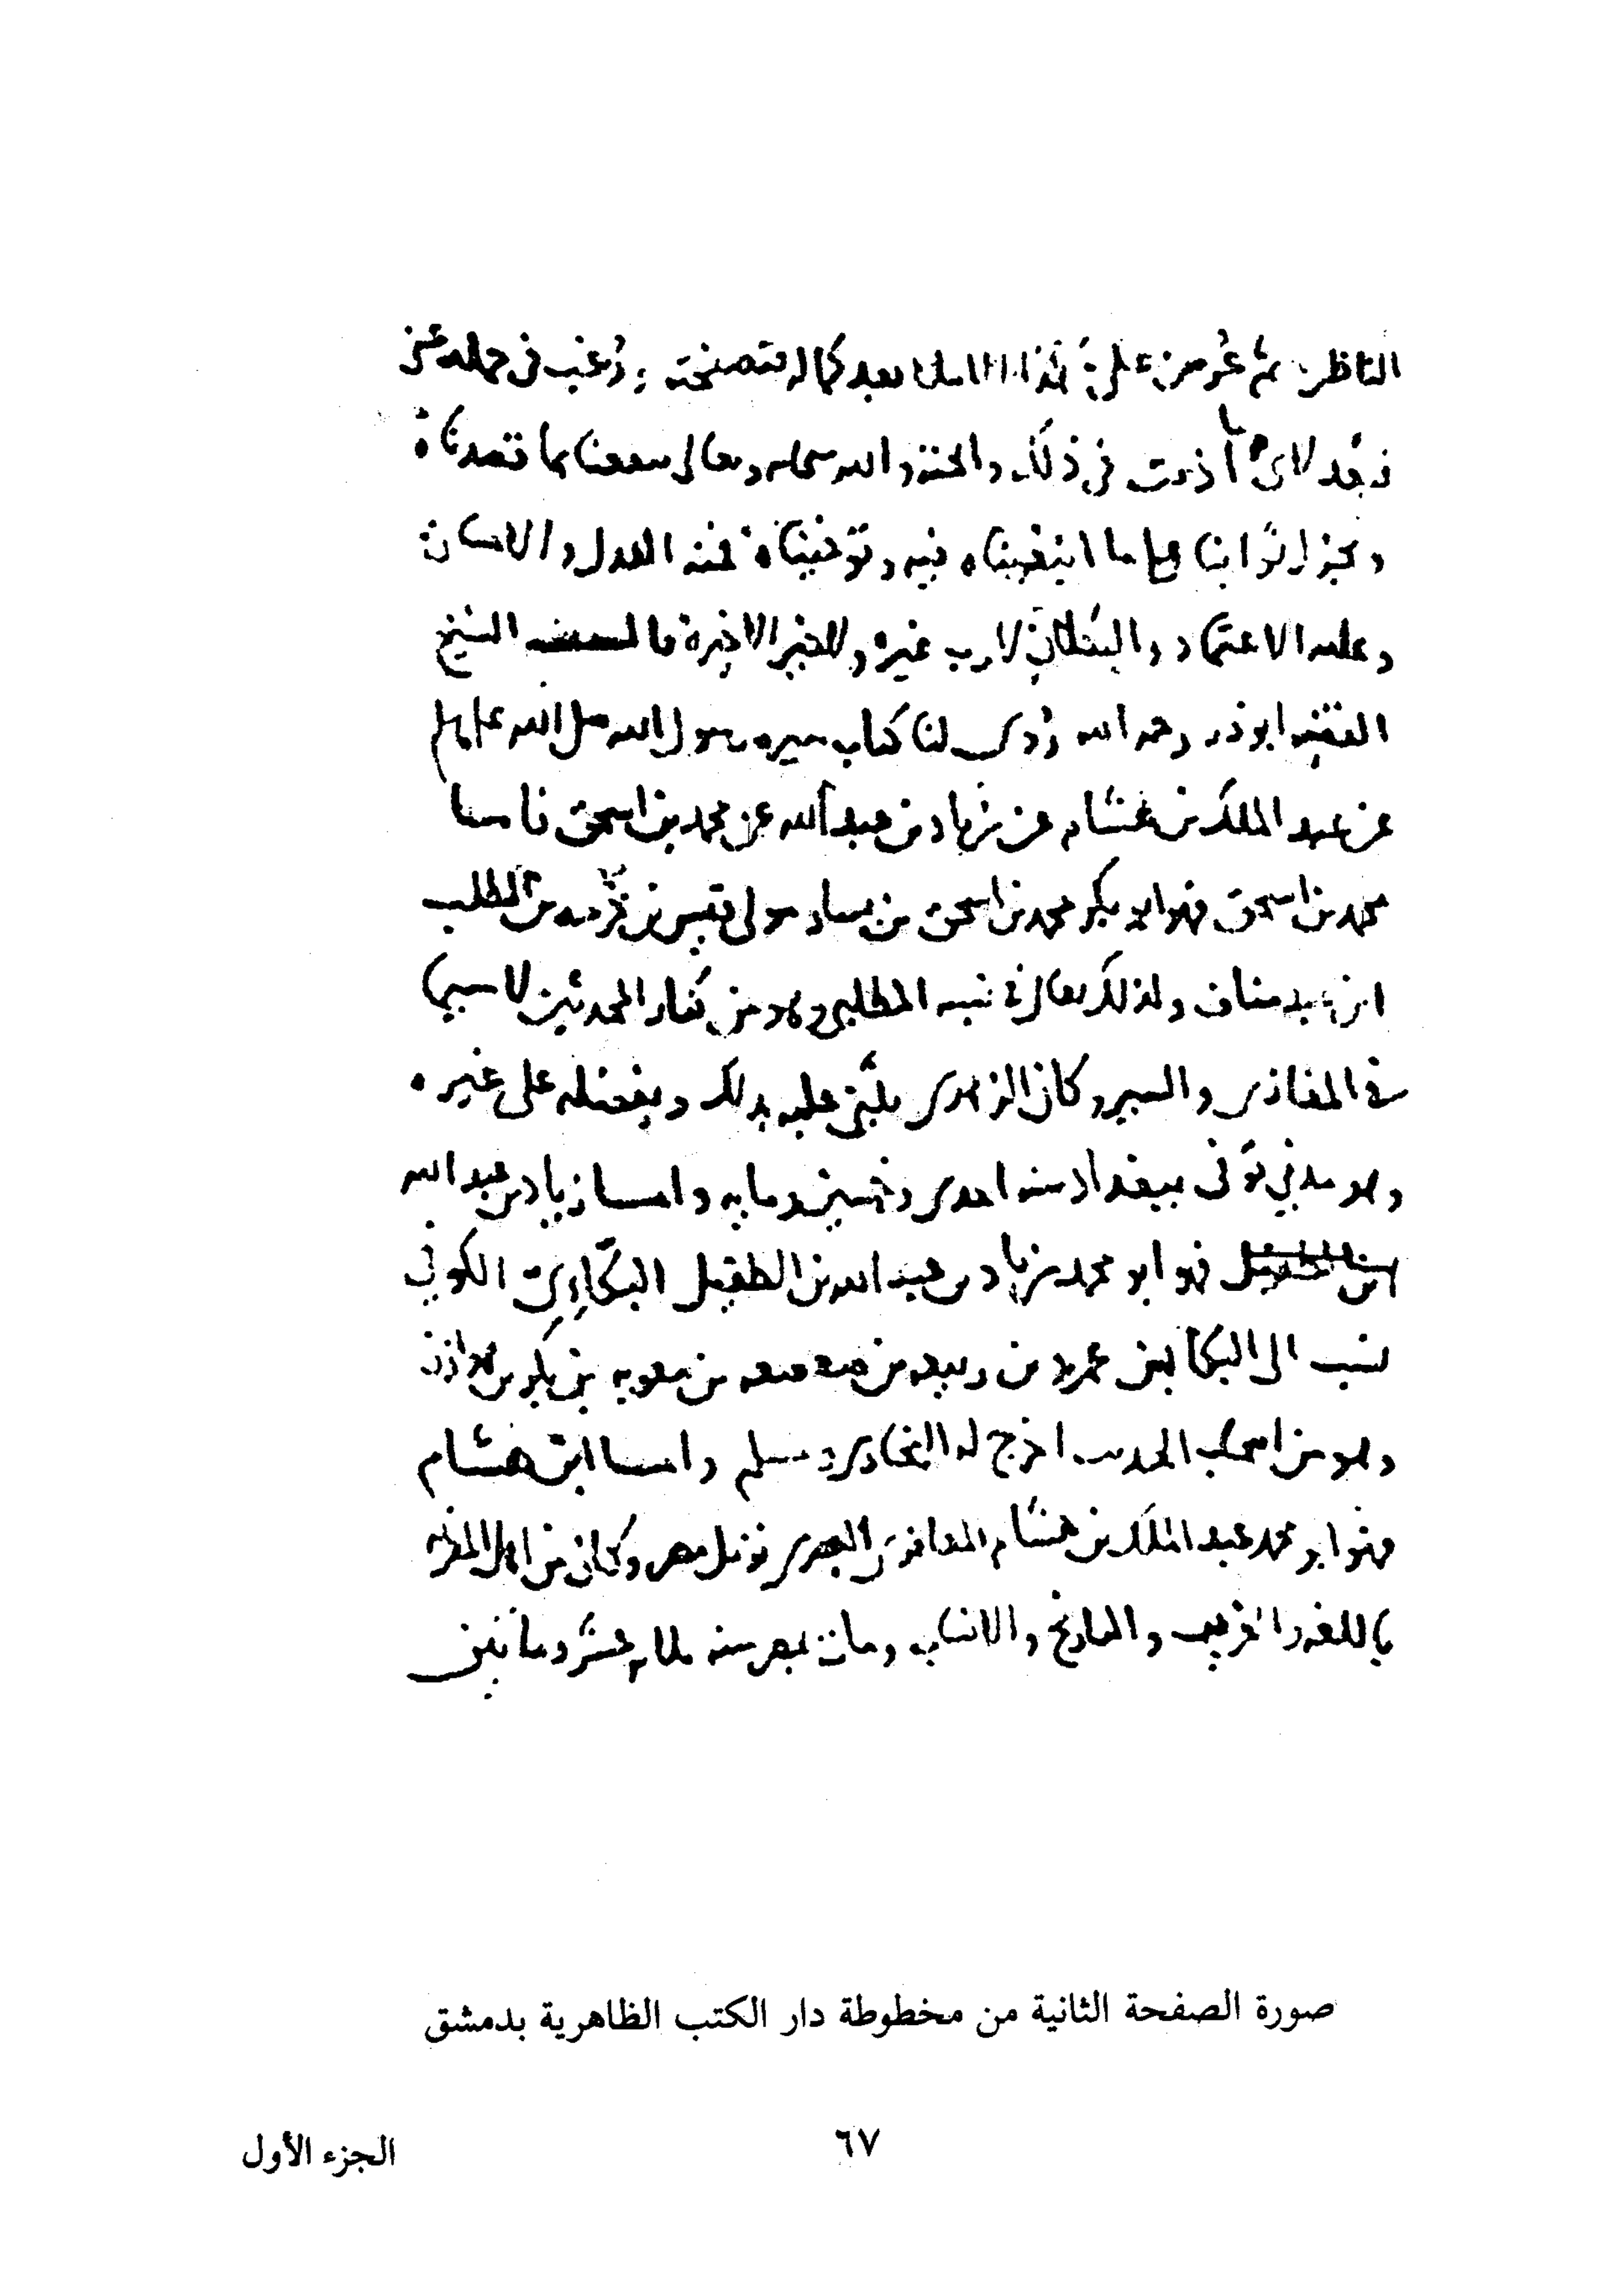 الناظر ثم عُرض علي هذا الاملا بعد كماله فتصفحته ورُغب في حمله عني
بعد لاي ما أذنت في ذلك والله سبحانه وتعالى ينفعنا بما قصدناه
ويجزل ثوابنا على ما ابتغيناه فيه وتوخيناه فمنه العدل والاحسان
وعليه الاعتماد والتكلان لا رب غيره ولا خير الا خيره قال الشيخ
الفقيه ابو ذر رحمه الله رُوي لنا كتاب سيره رسول الله صلى الله عليه وسلم
عن عبد الملك بن هشام عن زياد بن عبد الله عن محمد بن اسحق فاما
محمد بن اسحق فهو ابو بكر محمد بن اسحق بن يسار مولى قيس بن مخرمه بن المطلب
ابن عبد مناف ولذلك يقال في نسبه المطلبي وهو من كبار المحدثين لا سيما
في المغازي والسير وكان الزهري يثني عليه بذلك ويفضله على غيره
وهو مدني توفي ببغداد سنه احدى وخمسين ومايه واما زياد بن عبد الله
ابن الطفيل فهو ابو محمد زياد بن عبد الله بن الطفيل البكّاءي الكوفي
نسب الى البكا بن عمرو بن ربيعه بن صعصعه بن معويه بن بكر بن هوازن
وهو من اصحاب الحديث اخرج له البخاري ومسلم واما ابن هشام
فهو ابو محمد عبد الملك بن هشام المعافري البصري نزيل مصر وكان من اهل المعرفه
باللغه والغريب والتاريخ والانساب ومات بمصر سنه ثلاث عشر ومائتين
صورة الصفحة الثانية من مخطوطة دار الكتب الظاهرية بدمشق
٦٧
الجزء الأول